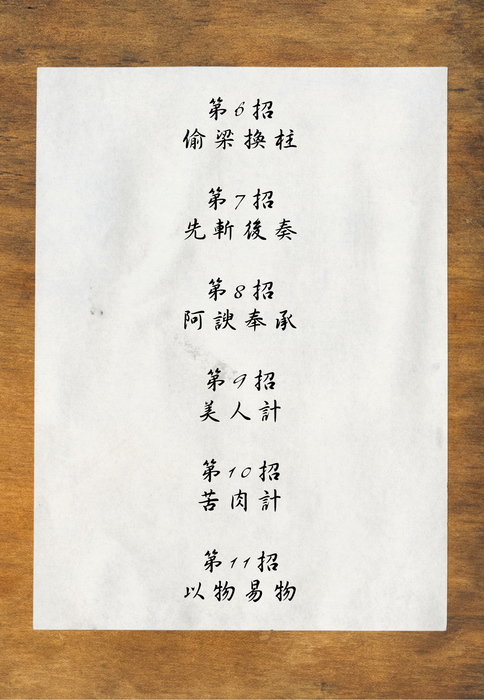 第6招
偷梁換柱
第7招
先斬後奏
第8招
阿諛奉承
第9招
美人計
第10招
苦肉計
第11招
以物易物